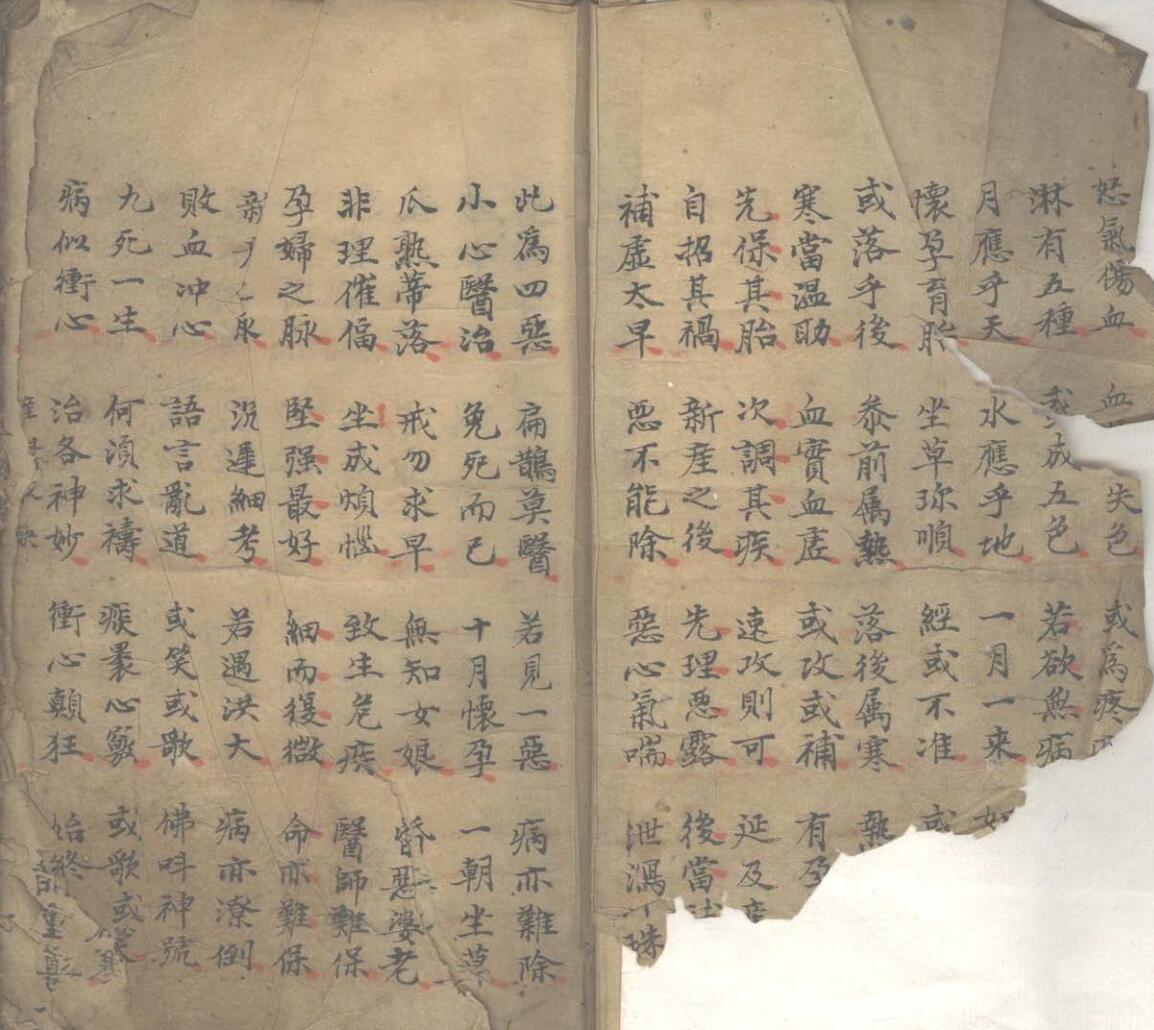 怒氣傷血 血 失色 或爲疼
淋有五種 或成五色 若欲無病
月應乎天 水應乎地 一月一来 如
懷孕育胎 坐草珎順 經或不准 或
或落乎後 叅前属熱 落後属寒 熱
寒當温助 血實血虚 或攻或補 有孕
先保其胎 次調其疾 速攻則可 延及
自招其禍 新産之後 先理惡露 後當
補虛太早 惡不能除 惡心氣喘 泄瀉
此爲四惡 扁鵲莫醫 若見一惡 病亦難除
小心醫治 免死而已 十月懷孕 一朝坐草
瓜熟蒂落 戒勿求早 無知女娘 婆老
非理催偪 坐成煩惱 致生危疾 醫師難保
孕婦之脉 堅强最好 細而復微 命亦難保
新 沉遲細考 若遇洪大 病亦潦倒
敗血冲心 語言亂道 或笑或歌 佛呌神號
九死一生 何湏求禱 痰裹心竅 或歌或
病似衝心 治各神妙 衝心顛狂 始終